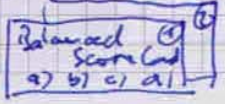 Balanced ①
Score Card
a) b) c) d)
②